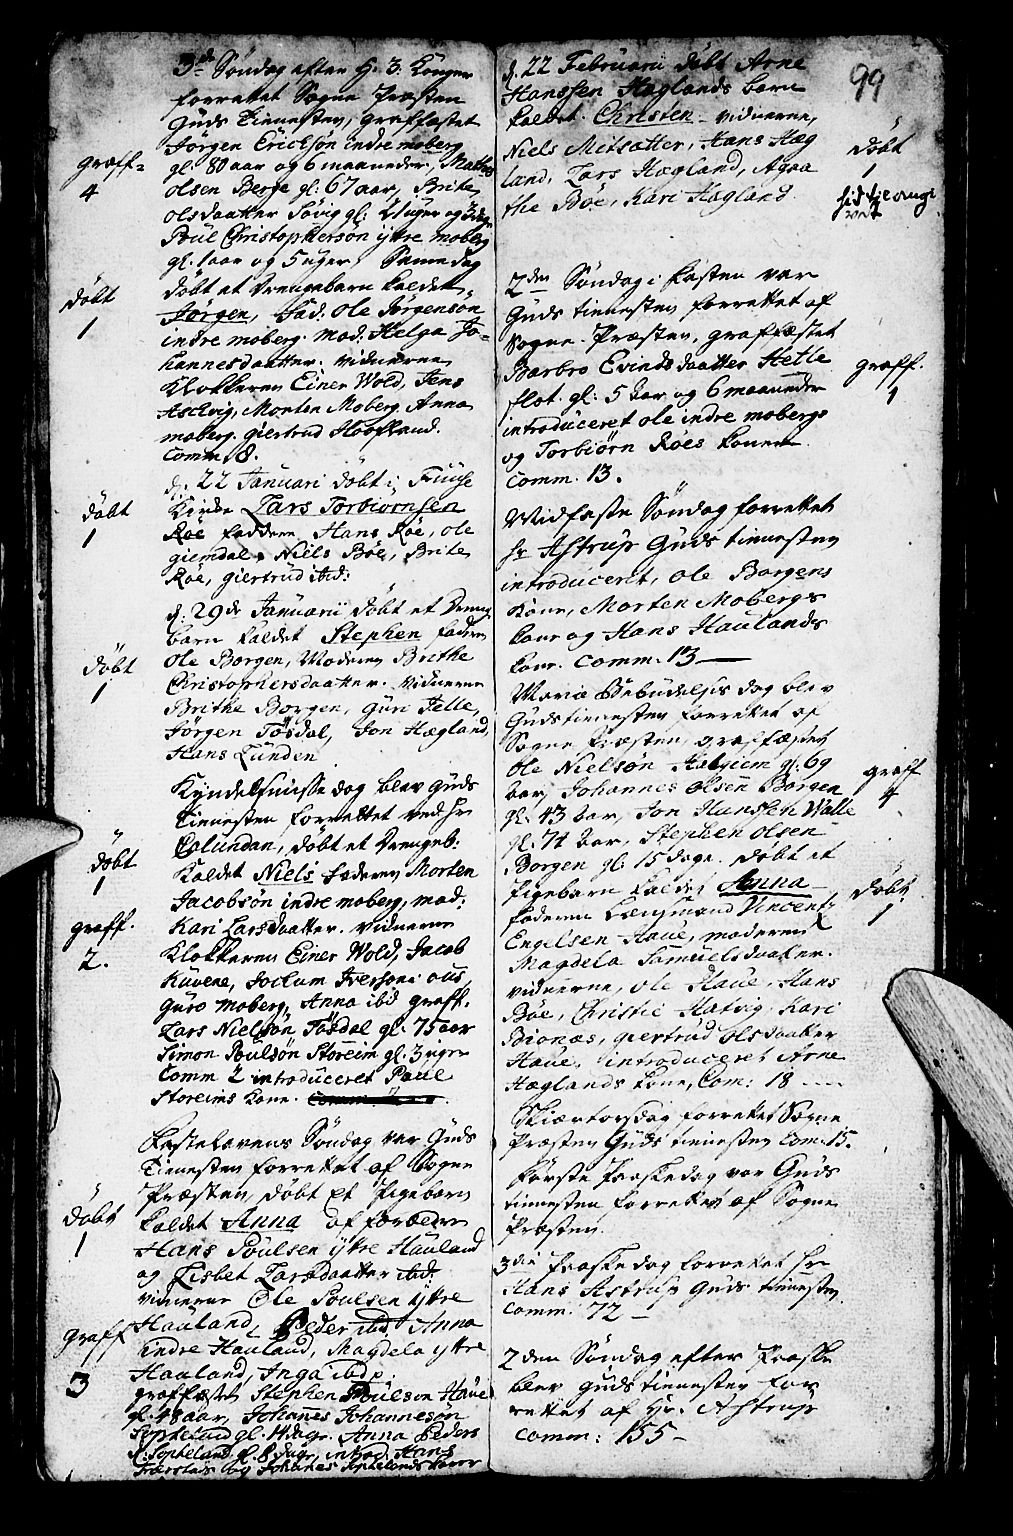 3die Søndag efter H. 3. Konger
forrettet Sogne Præsten
Guds Tienesten, graffæstet
Jørgen Ericksøn indre moberg
graff-
gl: 80 aar og 6 maaneder, Mathes
4
olsen Berge gl: 67 aar, Brite
olsdaatter Søvig gl:
Poul Christophersøn ytre moberg
gl. 1 aar og 5 uger, Samme dag
døbt
døbt et drengebarn kaldet
1
Jørgen, Fad. Ole Jørgensøn
indre moberg. mod. Helga Jo-
hannesdaatter. vidnerne
Klokkeren Einer Wold, Jens
Aschvig, Morten Moberg. Anna
moberg. giertrud Hoofland.
Comm 8.
d: 22 Januari døbt i Fuuse
døbt
Kirke Lars Torbiørnsen
1
Røe faddere Hans Røe, ole
giemdal, Niels Bøe, Brite
Røe, giertrud ibid:
d: 29de Januarii døbt et Drenge
barn kaldet Stephen faderen
døbt
Ole Borgen, Moderen Brithe
1
Christophersdaatter. Vidnerne
Brithe Borgen, Guri Telle,
Jørgen Tøsdal, Jon Hægland,
Hans Lunden
Kyndelsmisse dag blev Guds
Tienesten forrettet ved Hr
Colundan, døbt et Drengeb:
døbt
kaldet Niels faderen Morten
1
Jacobsøn indre moberg, mod:
graff.
Kari Larsdaatter. vidnerne
2.
Klokkeren Einer Wold, Jacob
Kuvene, Jockum Iversøn ous
Guro moberg, Anna ibid graff.
Lars Nielsøn Tøsdal gl. 75 aar
Simon Poulsøn Storeim gl. 3 uger
Comm 2 introduceret Paul
Storeims kone.
Fastelavens Søndag var Guds
Tienesten forrettet af Sogne
Præsten, døbt et Pigebarn
døbt
kaldet Anna af forældre
1
Hans Poulsen ytre Hauland
og Lisbet Larsdaatter ibid.
vidnerne Ole Poulsen ytre
graff
Hauland, Peder ibid Anna
indre Hauland, Magdela ytre
3
Hauland, Inga ibid
graffæstet Stephen Poulson Haue
gl. 48 aar, Johannes Johannesøn
Sophelend gl. 14 dage. Anna Peders
d. Sopheland gl. 8 dage, introd. Hans
og Johannes Sophelands koner
99
d: 22 Februarii døbt Arne
Hanssen Hæglands barn
kaldet Christen vidnerne,
døbt
Niels Metsætter, Hans Hæg
1
land, Lars Hægland, Agaa
the Bøe, Kari Hægland.
2den Søndag i Fasten var
Guds tienesten forrettet af
Sogne-Præsten, graffæstet
Barbro Evindsdaatter Hetle
graff.
flot. gl: 5 aar og 6 maaneder
1
introduceret ole indre mobergs
og Torbiørn Røes koner.
Comm. 13.
Midfaste Søndag forrettet
Hr Astrup Guds tienesten
introduceret, Ole Borgens
kone, Morten Mobergs
kone og Hans Haulands
kone. Comm. 13 —
Mariæ Bebudelsis dag blev
Gudstienesten forrettet af
Sogne Præsten, graffæstet
Ole Nielsøn Hatviem gl. 69
graff
aar, Johannes olsen Borgen
4
gl. 43 aar, Jon Hanssen Walle
gl. 74 aar, Stephen olsen
Borgen gl: 15 dage. døbt et
Pigebarn kaldet Anna
døbt
faderen Lensmand Vincentz
1
Engelsen Haue, moderen
Magdela Samuelsdaatter.
vidnerne, ole Haue, Hans
Bøe, Christie Hatvig, Kari
Biønæs, giertrud olsdaatter
Haue, introduceret Arne
Hæglands kone, Com: 18 —
Skiærtorsdag forrettet Sogne
Præsten Guds tienesten Com: 15.
Første Paaskedag var Guds
tienesten forrettet af Sogne
Præsten.
3die Paaskedag forrettet Hr
Hans Astrup Guds tienesten
Comm: 72 —
2den Søndag efter Paaske
blev Guds tienesten for
rettet af Hr. Astrup
Comm: 155 —